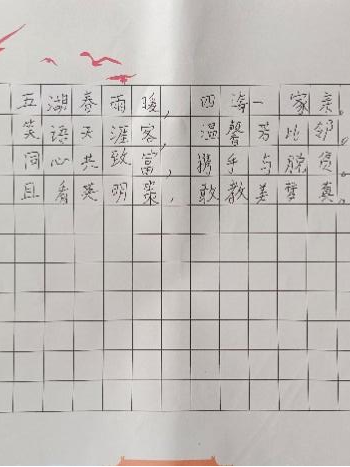 五湖春雨暖，四海一家亲。
笑语天涯客，温馨若比邻。
同心共致富，携手与脱贫。
且看英明策，敢教美梦真。